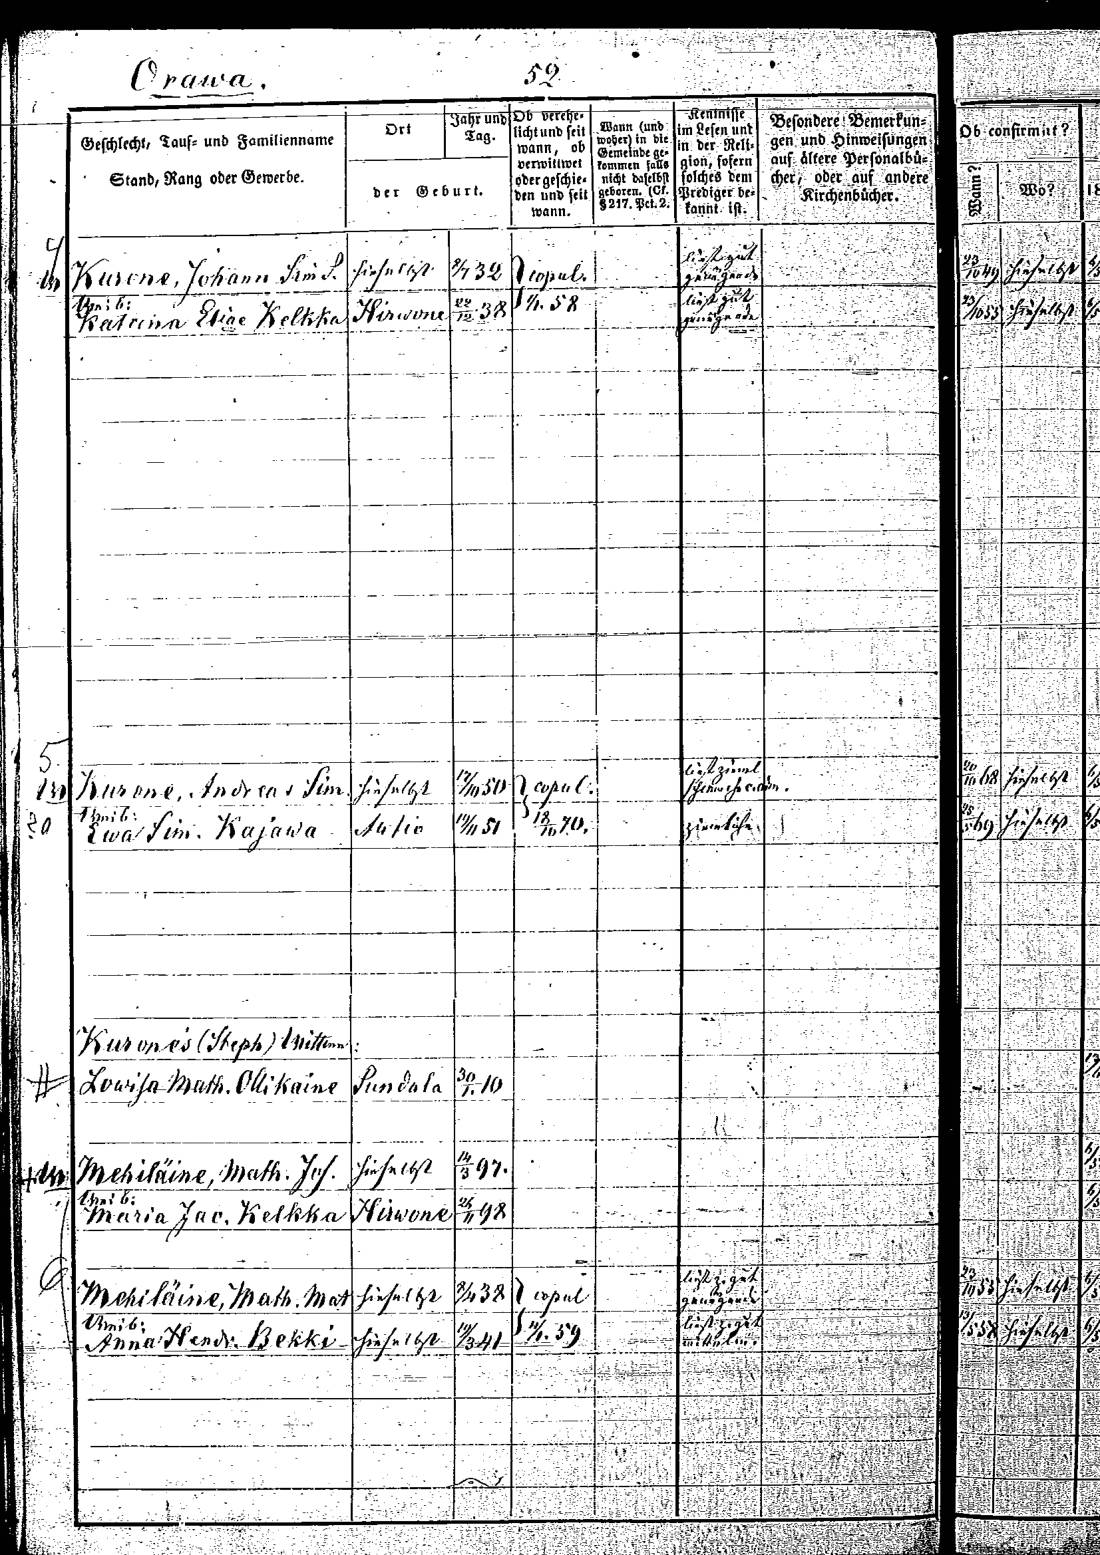 Orawa. 52
Geschlecht, Tauf= und Familienname
Stand, Rang oder Gewerbe.
Ort
Jahr und Tag.
der Geburt.
Ob verehe=
licht und seit
wann, ob
verwittwet
oder geschie=
den und seit
wann.
Wann (und
woher) in die
Gemeinde ge=
kommen falls
nicht daselbst
geboren. (Cf.
§ 217. Pct. 2.
Kentnisse
im Lesen und
in der Reli=
gion, sofern
solches dem
Prediger be=
kannt ist.
Besondere Bemerkun=
gen und Hinweisungen
auf ältere Personalbü=
cher, oder auf andere
Kirchenbücher.
Ob confirmirt?
Wann?
Wo?
18
4
Kurone, Johann Sim S. hieselbst 32 copul. liest gut genügend 23/10 49 hieselbst
Weib:
Katrina Eliae Kelkka Hirwone 22/12 38 58 liest gut genügend hieselbst
5
Kurone, Andreas Sim. hieselbst 50 copul. liest zieml 68 hieselbst
Weib:
Ewa Sim. Kajawa Autio 51 18/10 70. ziemlich 69 hieselbst
Kurone's (Steph) Wittwe:
Lowisa Math. Ollikaine Sundala 30/1. 10
Mehiläine, Math. Joh. hieselbst 14/3 97.
Weib:
Maria Jac. Kelkka Hirwone 26/11 98
6
Mehiläine, Math. Mat hieselbst 38 copul liest z. gut genügend 53 hieselbst
Weib:
Anna Hendr. Bekki hieselbst 41 59 liest z. gut 58 hieselbst